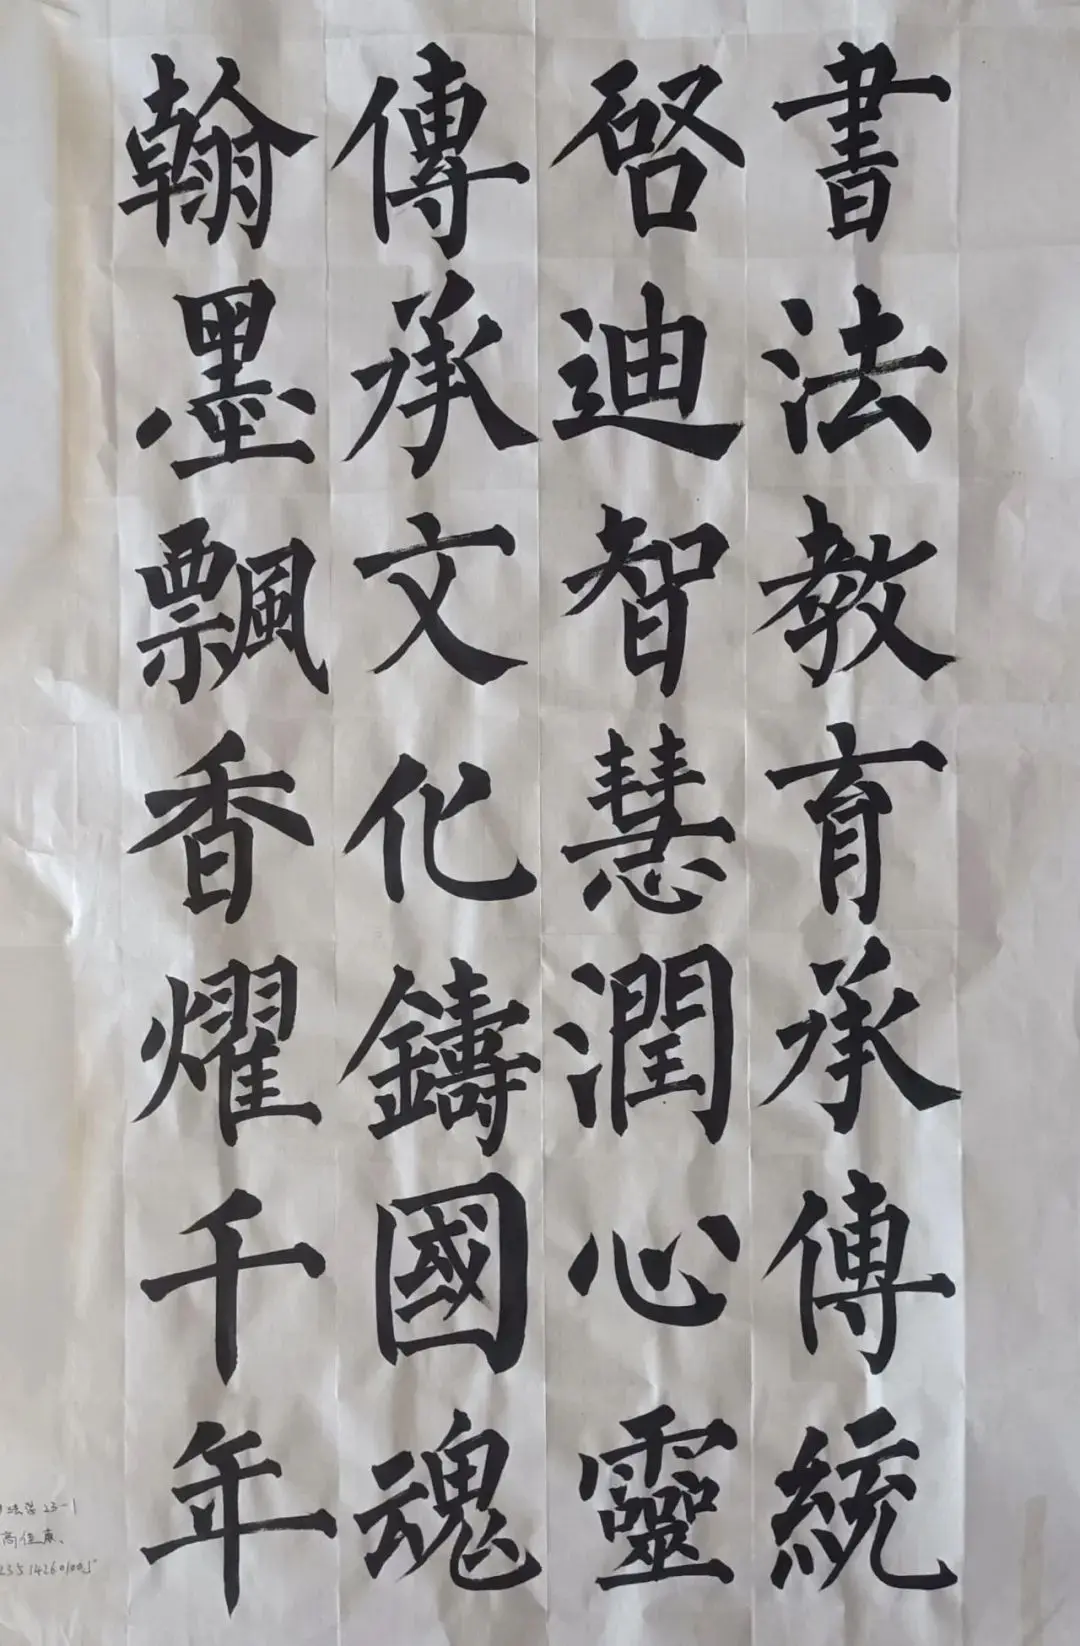 書法教育承傳統
啓迪智慧潤心靈
傳承文化鑄國魂
翰墨飄香耀千年
法学23-1
高佳康